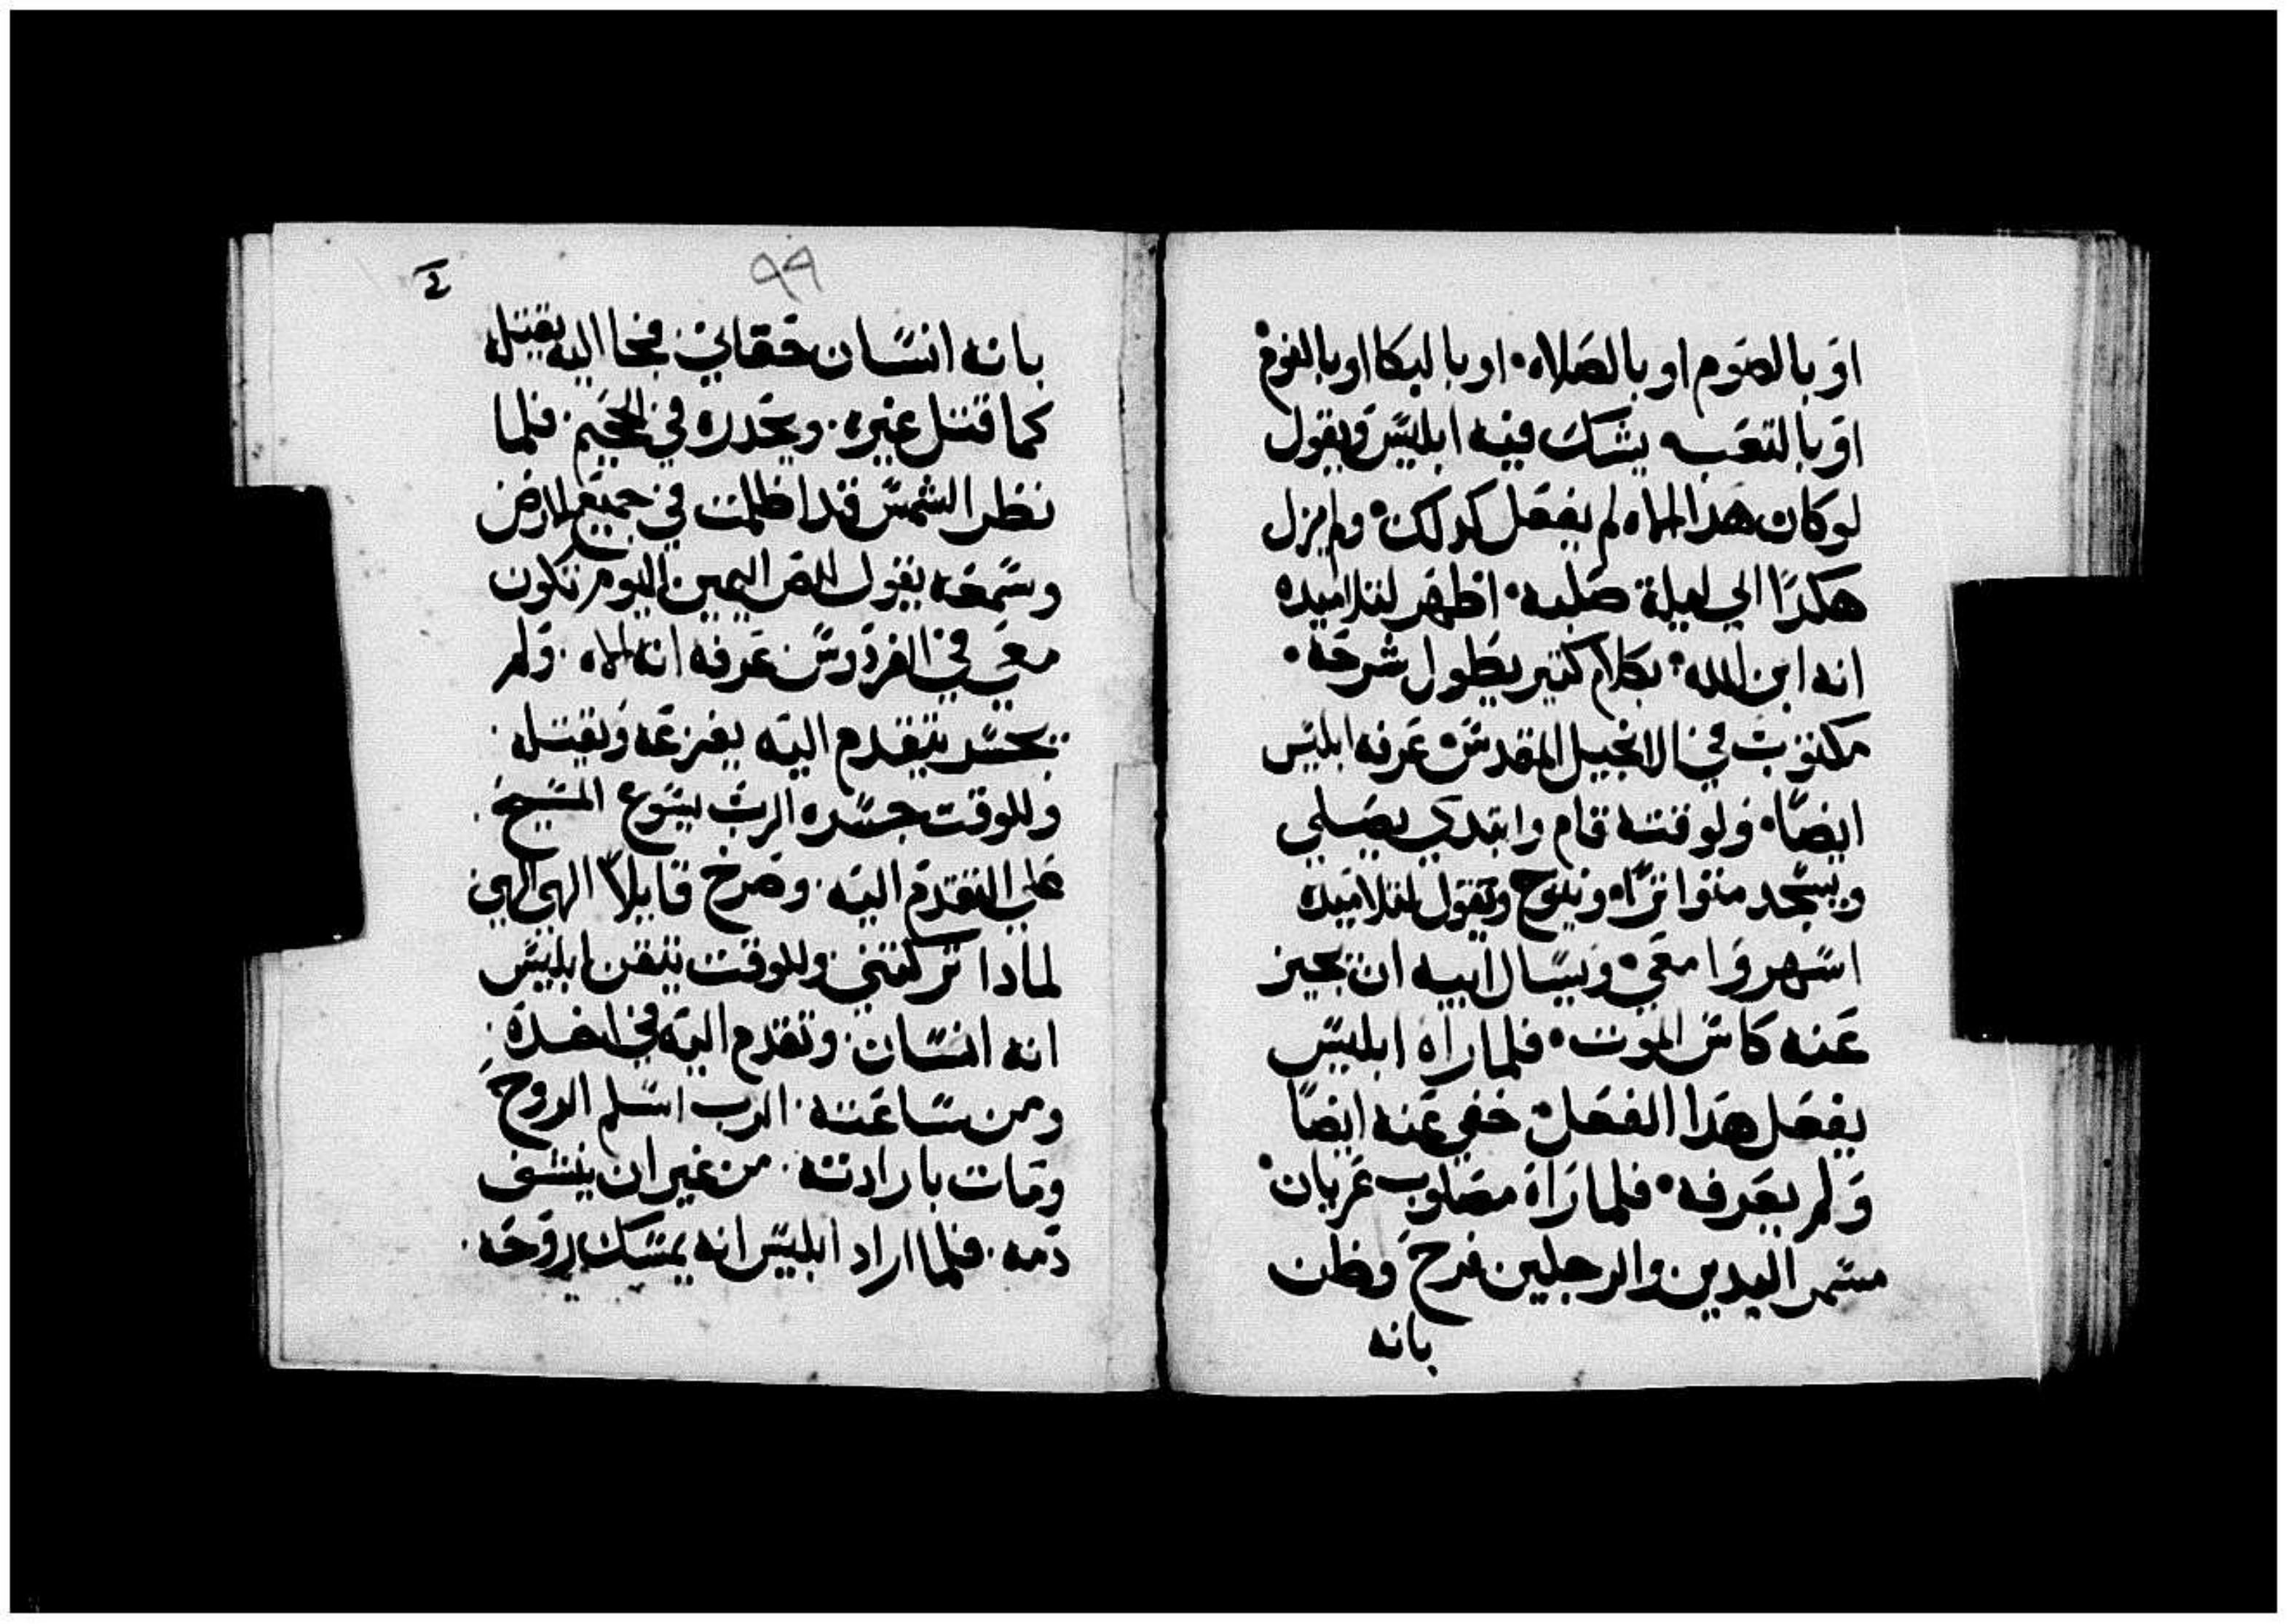 او بالصوم او بالصلاه۰ او بالبكا او بالنوم۰
او بالتعب يشك فيه ابليس ويقول
لو كان هدا الاه لم يفعل كدلك۰ ولم يزل
هكدًا الي ليلة صلبه۰ اظهر لتلاميده
انه ابن الله۰ بكلام كتير يطول شرحه۰
مكتوب في الانجيل المقدس۰ عرفه ابليس
ايضًا۰ ولوقته قام وابتدي يصلي
ويسجد متواترًا۰ وينوح ويقول لتلاميده
اسهروا معي۰ ويسال ابيه ان يجيز
عنه كاس الموت۰ فلما راه ابليس
يفعل هدا الفعل۰ خفي عنه ايضًا
ولم يعرفه۰ فلما راه مصلوب عريان۰
مسمر اليدين والرجلين فرح وظن
بانه
٩٩
بانه انسان حقاني۰ فجا اليه يقتله
كما قتل غيره۰ ويحدره في الجحيم۰ فلما
نظر الشمس قد اظلمت في جميع الارض
وسمعه يقول للص اليمين اليوم تكون
معي في الفردوس۰ عرفه انه الاه۰ ولم
يجسر يتقدم اليه يفزعه ويقتله۰
وللوقت جسره الرب يسوع المسيح۰
علي التقدم اليه۰ وصرخ قايلاً الهي الهي۰
لمادا تركتني۰ وللوقت يتقن ابليس
انه انسان۰ وتقدم اليه في اخده۰
ومن ساعته۰ الرب اسلم الروح
ومات بارادته۰ من غير ان ينشف
دمه۰ فلما اراد ابليس انه يمسك روحه۰